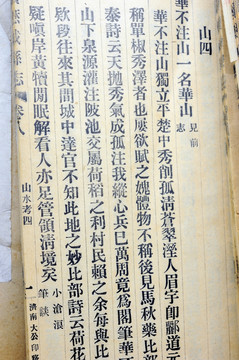 山四
華不注山一名華山見前志
華不注山獨立平楚中秀削孤淸蒼翠溼人眉宇卽酈道
稱單椒秀澤者也屢欲賦之媿體物不稱後見馬秋藥比部
泰詩云天拋秀氣成孤注我縱心兵巳萬周竟爲閣筆華不
山下泉源灌注陂池交屬荷稻之利村民賴之余每與比
欵段往來其間城中達官不知此地之妙比部詩云荷花
疑嗔岸黃犢閒眠解看人亦足管領淸境矣小滄浪筆談
縣志
山水考四
一
濟南大公印務